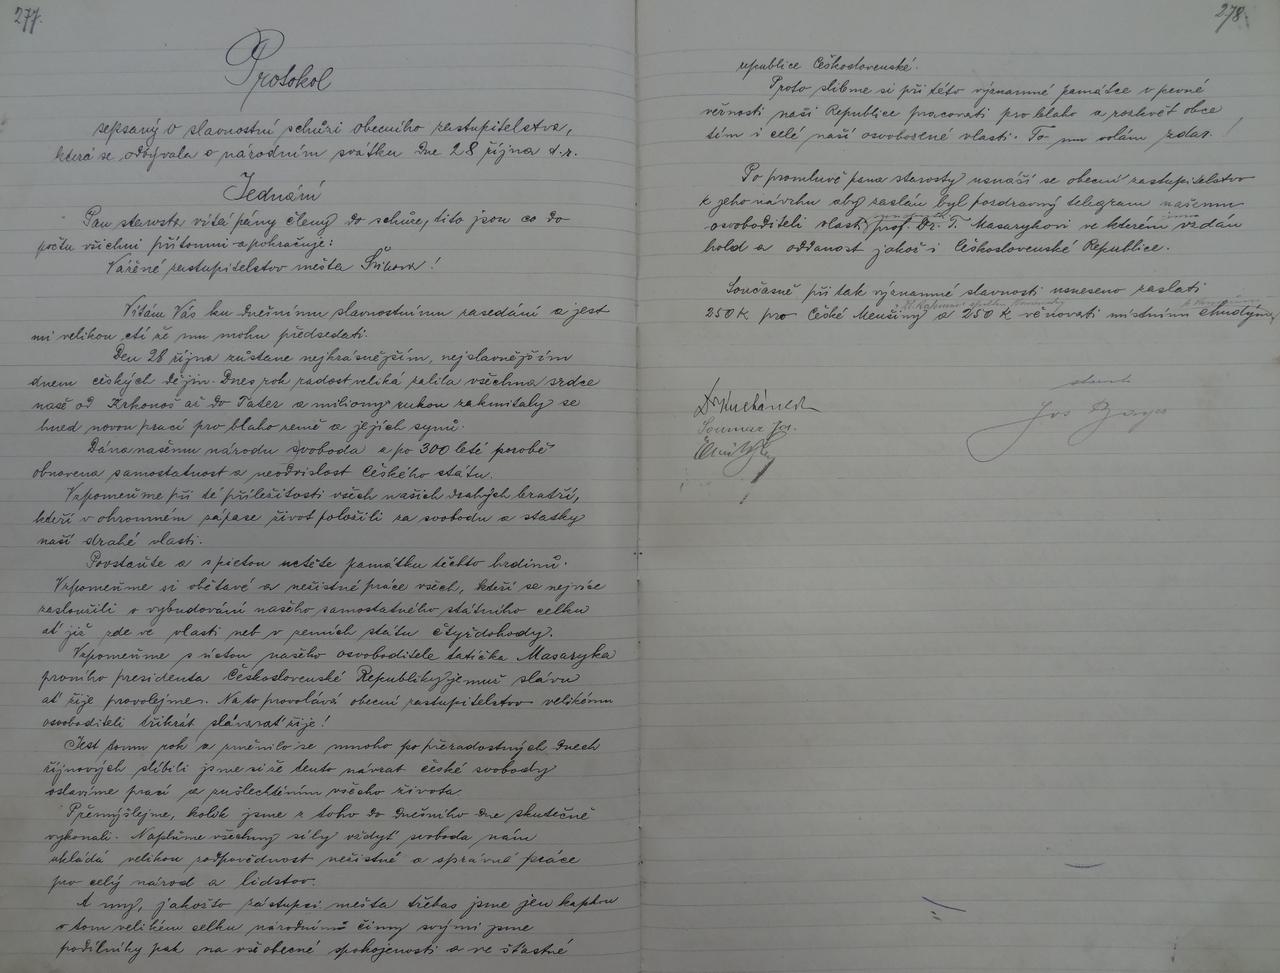 277.
Protokol
sepsaný o slavnostní schůzi obecního zastupitelstva,
která se odbývala o národním svátku dne 28 října t.r.
Jednání
Pan starosta vítá pány členy do schůze, tito jsou co do
počtu všichni přítomni a pokračuje:
Vážené zastupitelstvo města
Vítám Vás ku dnešnímu slavnostnímu zasedání a jest
mi velikou ctí že mu mohu předsedati.
Den 28 října zůstane nejkrásnějším, nejslavnějším
dnem českých dějin. Dnes rok radost veliká zalila všechna srdce
naše od Krkonoš až do Tater a miliony rukou zakmitaly se
hned novou prací pro blaho země a jejích synů.
Dána našemu národu svoboda a po 300 leté porobě
obnovena samostatnost a neodvislost Českého státu.
Vzpomeňme při té příležitosti všech našich drahých bratří,
kteří v ohromném zápase život položili za svobodu a statky
naší drahé vlasti.
Povstaňte a s pietou uctěte památku těchto hrdinů.
Vzpomeňme si obětavé a nezištné práce všech, kteří se nejvíce
zasloužili o vybudování našeho samostatného státního celku
ať již zde ve vlasti neb v zemích státu čtyřdohody.
Vzpomeňme s úctou našeho osvoboditele tatíčka Masaryka
prvního presidenta Československé Republiky jemuž slávu
ať žije provolejme. Na to provolává obecní zastupitelstvo velikému
osvoboditeli třikrát sláva ať žije!
Jest tomu rok a změnilo se mnoho po přeradostných dnech
říjnových slíbili jsme si že tento návrat české svobody
oslavíme prací a zušlechtěním všeho života.
Přemýšlejme, kolik jsme z toho do dnešního dne skutečně
vykonali. Napněme všechny síly vždyť svoboda nám
ukládá velikou zodpovědnost nezištné a správné práce
pro celý národ a lidstvo.
A my, jakožto zástupci města třebas jsme jen kapkou
v tom velikém celku národním činy svými jsme
podílníky pak na všeobecné spokojenosti a ve šťastné
278.
republice Československé.
Proto slibme si při této významné památce v pevné
věrnosti naší Republice pracovati pro blaho a rozkvět obce
tím i celé naší osvobozené vlasti. To mu volám zdar!
Po promluvě pana starosty usnáší se obecní zastupitelstvo
k jeho návrhu aby zaslán byl pozdravný telegram našemu
osvoboditeli vlasti prof. Dr. T. Masarykovi ve kterém vzdán
hold a oddanost jakož i Československé Republice.
Současně při tak významné slavnosti usneseno zaslati
250 K pro České Menšiny a 250 K věnovati místním chudým
starosta
Jos